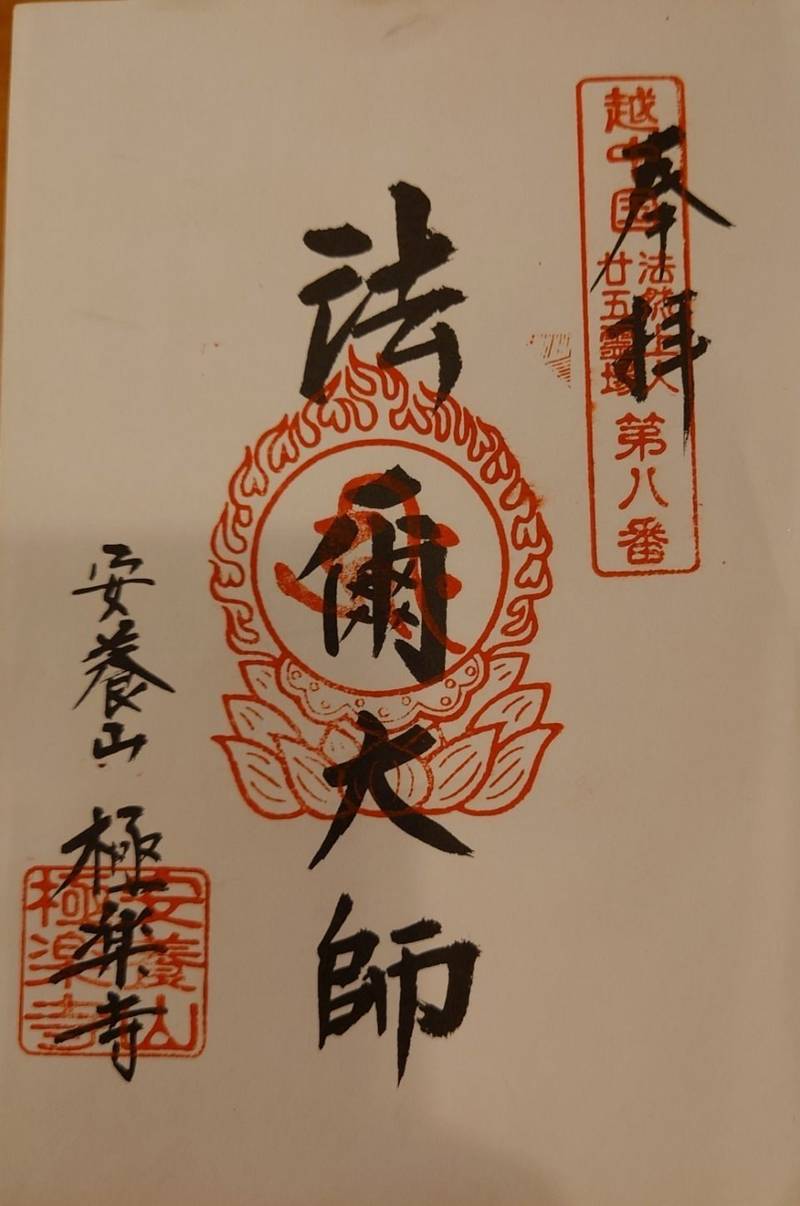 奉拝
越中国
法然上人
廿五霊場
第八番
法爾大師
安養山
極楽寺
安養山
極楽寺